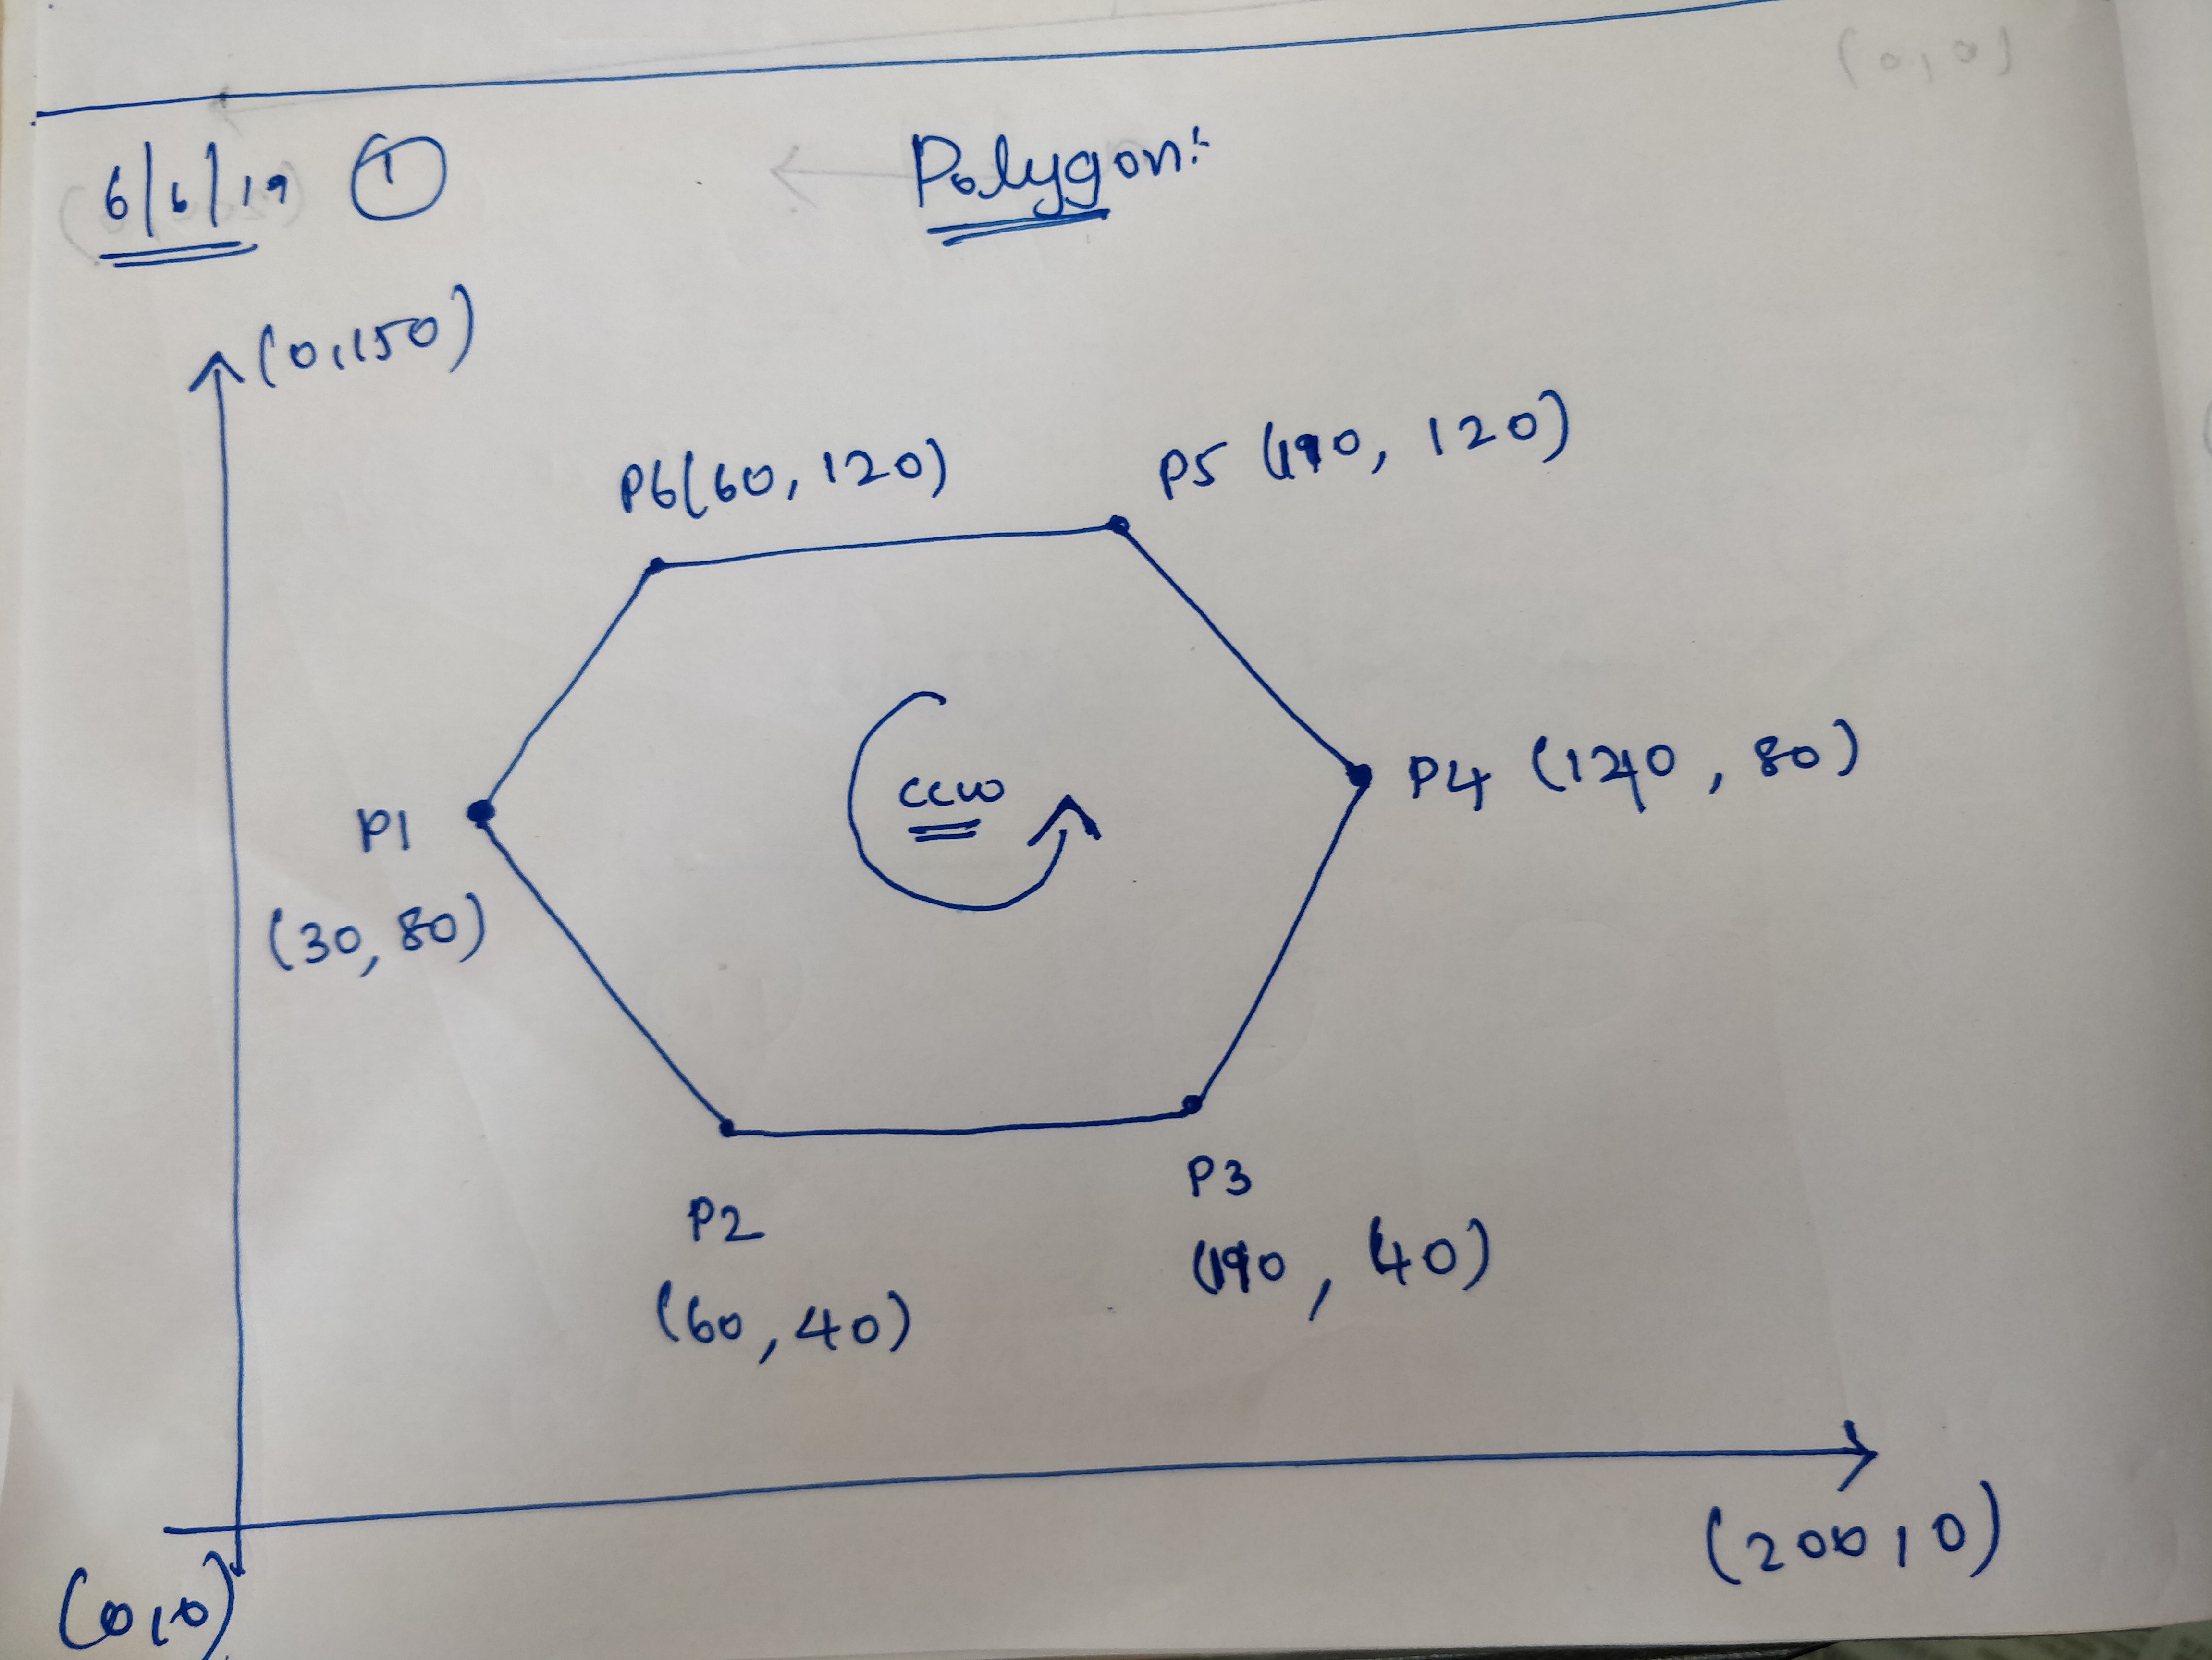 6/6/19 ① Polygon:-
(0,150)
P6(60, 120)
P5 (190, 120)
ccw
P4 (1240, 80)
P1
(30, 80)
P3
(190, 40)
P2
(60, 40)
(200,0)
(0,0)